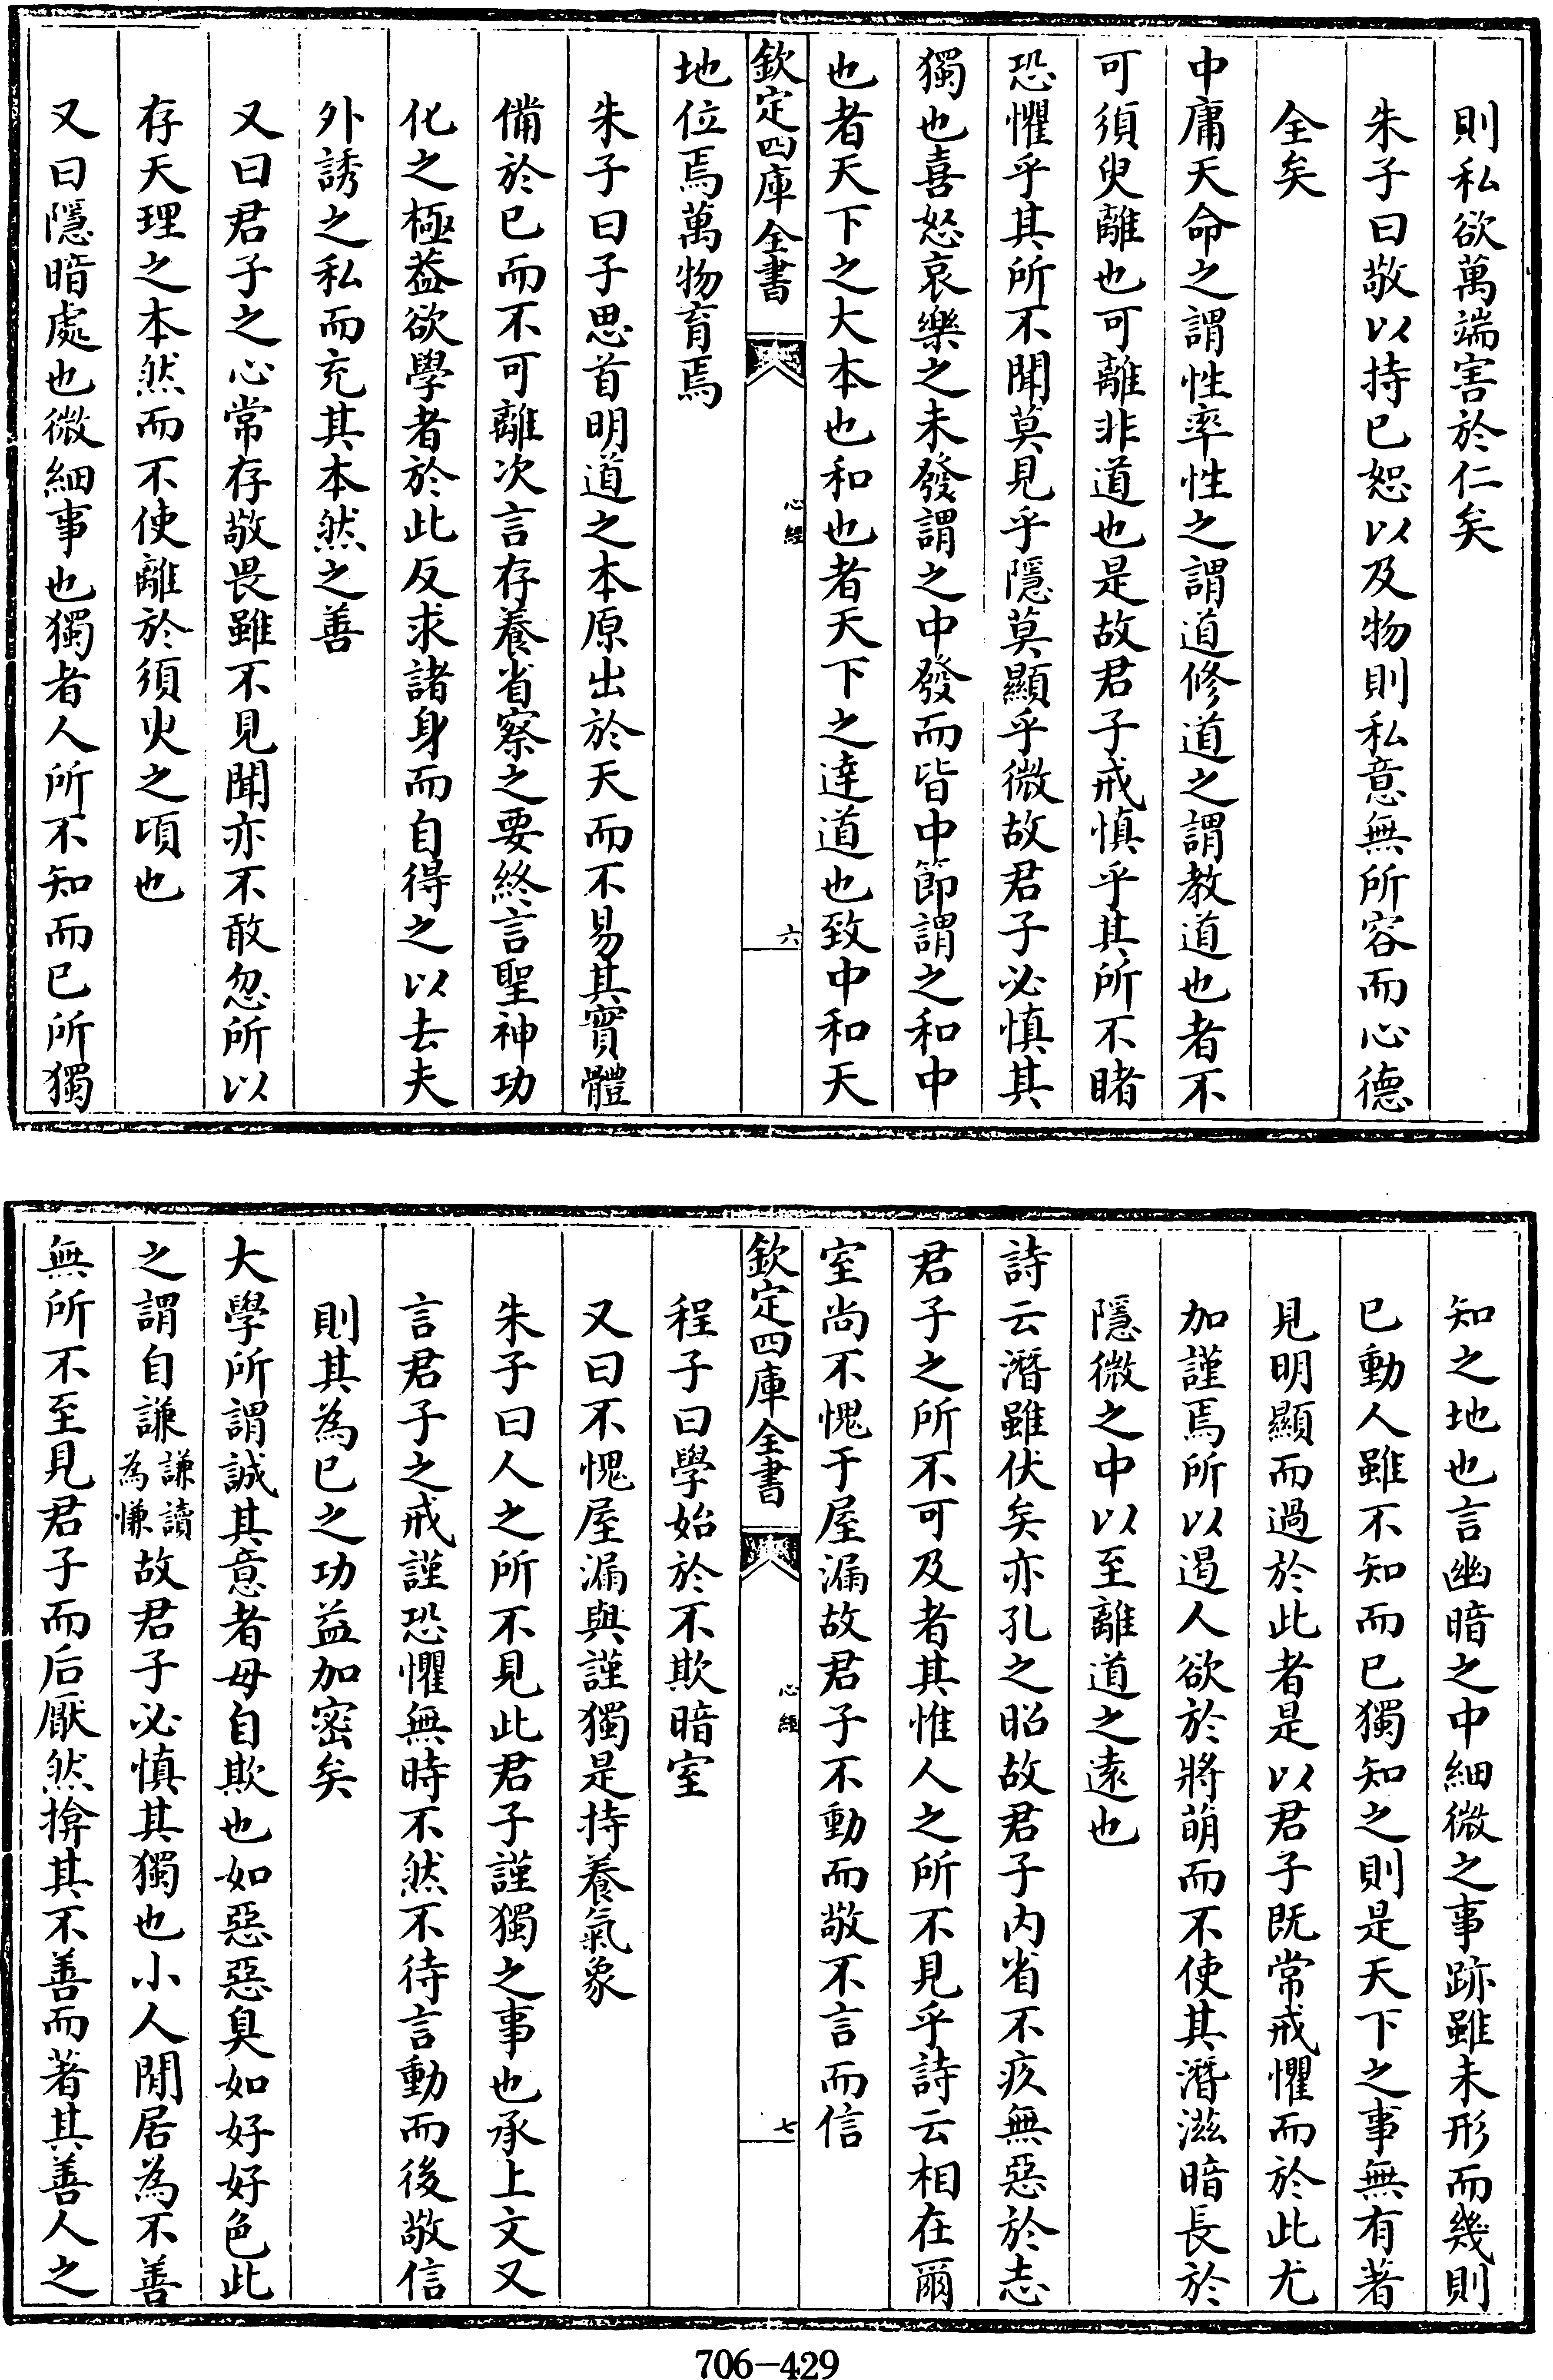 則私欲萬端害於仁矣
朱子曰敬以持已恕以及物則私意無所容而心德
全矣
中庸天命之謂性率性之謂道修道之謂教道也者不
可須臾離也可離非道也是故君子戒慎乎其所不睹
恐懼乎其所不聞莫見乎隱莫顯乎微故君子必慎其
獨也喜怒哀樂之未發謂之中發而皆中節謂之和中
也者天下之大本也和也者天下之逹道也致中和天
欽定四庫全書 心經 六
地位焉萬物育焉
朱子曰子思首明道之本原出於天而不易其實體
備於已而不可離次言存養省察之要終言聖神功
化之極葢欲學者於此反求諸身而自得之以去夫
外誘之私而充其本然之善
又曰君子之心常存敬畏雖不見聞亦不敢忽所以
存天理之本然而不使離於須臾之頃也
又曰隱暗處也微細事也獨者人所不知而已所獨
知之地也言幽暗之中細微之事跡雖未形而幾則
已動人雖不知而已獨知之則是天下之事無有著
見明顯而過於此者是以君子既常戒懼而於此尤
加謹焉所以遏人欲於將萌而不使其潛滋暗長於
隱微之中以至離道之遠也
詩云潛雖伏矣亦孔之昭故君子内省不疚無惡於志
君子之所不可及者其惟人之所不見乎詩云相在爾
室尚不愧于屋漏故君子不動而敬不言而信
欽定四庫全書 心經 七
程子曰學始於不欺暗室
又曰不愧屋漏與謹獨是持養氣象
朱子曰人之所不見此君子謹獨之事也承上文又
言君子之戒謹恐懼無時不然不待言動而後敬信
則其為已之功益加密矣
大學所謂誠其意者毋自欺也如惡惡臭如好好色此
之謂自謙謙讀為慊故君子必慎其獨也小人閒居為不善
無所不至見君子而后厭然揜其不善而著其善人之
706-429